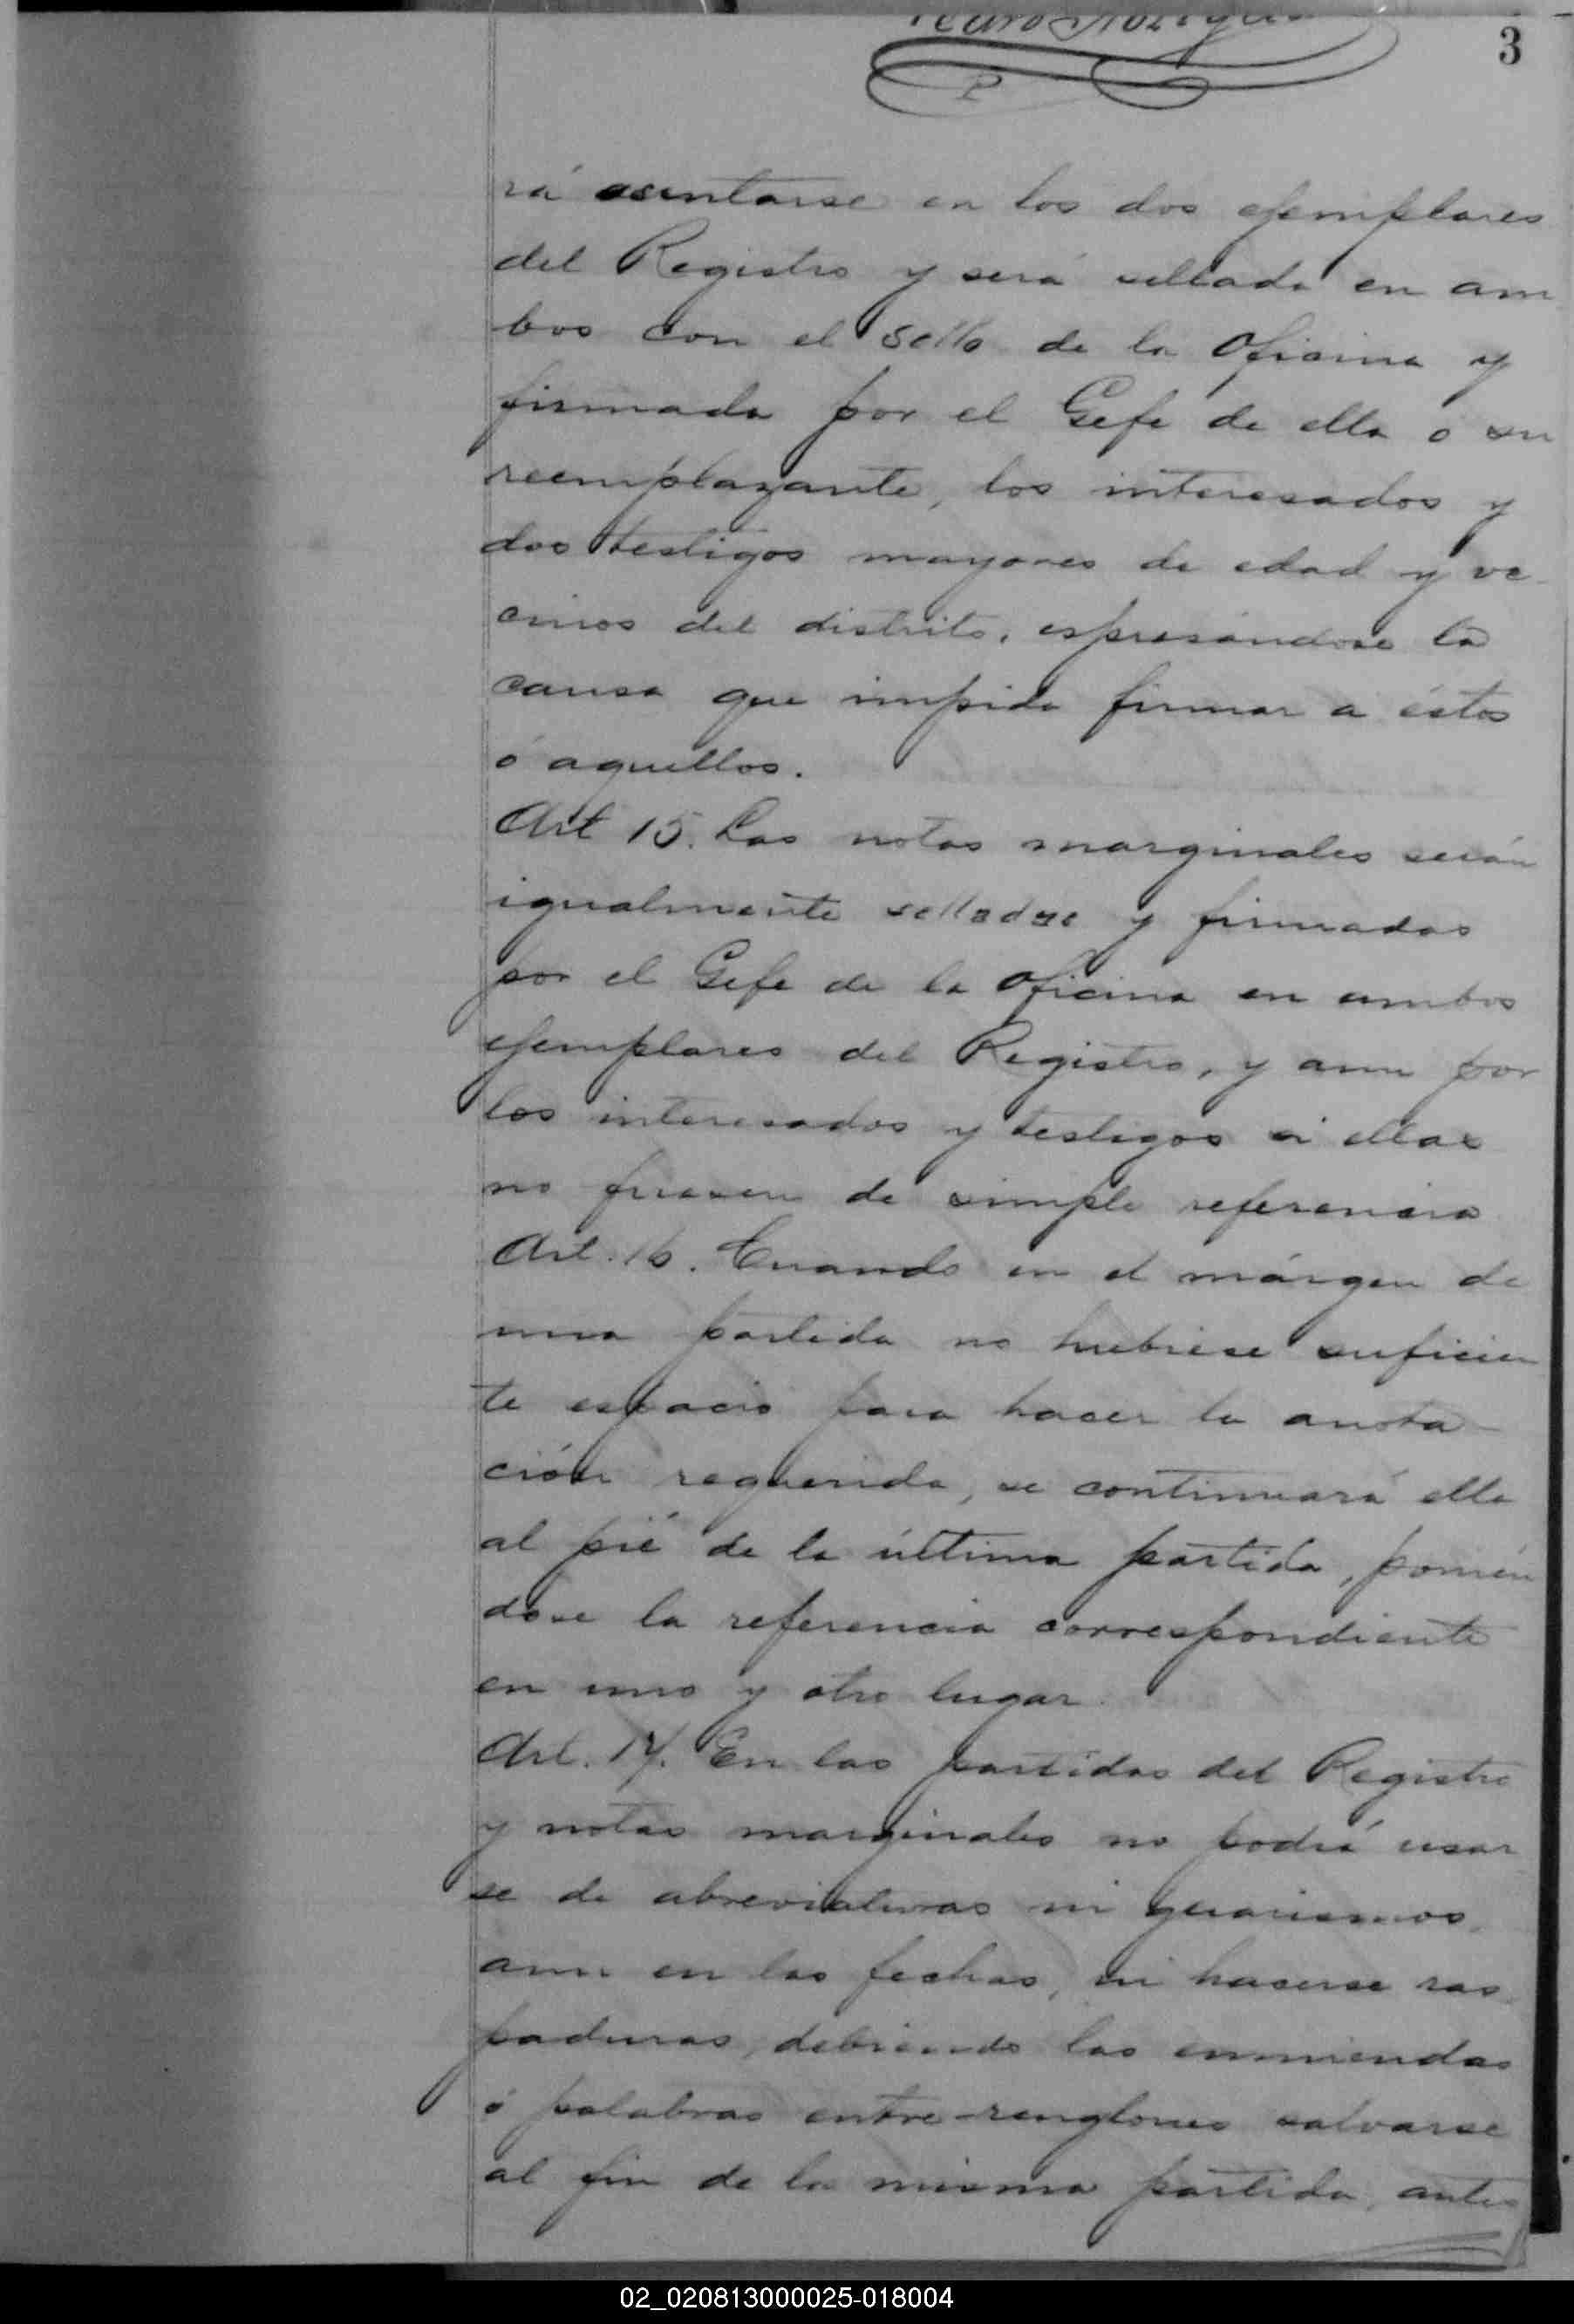 3
rá asentarse en los dos ejemplares
del Registro y será sellada en am
bos con el Sello de la Oficina y
firmada por el Gefe de ella o su
reemplazante, los interesados y
dos testigos mayores de edad y ve
cinos del distrito, espresándose la
causa que impida firmar a éstos
ó aquellos.
Art 15. Las notas marginales serán
igualmente selladas y firmadas
por el Gefe de la Oficina en ambos
ejemplares del Registro, y aun por
los interesados y testigos si ellas
no fuesen de simple referencia
Art. 16. Cuando en el márgen de
una partida no hubiese suficien
te espacio para hacer la anota-
ción requerida, se continuará ella
al pié de la última partida, ponién
dose la referencia correspondiente
en uno y otro lugar.
Art. 17. En las partidas del Registro
y notas marginales no podrá usar
se de abreviaturas ni guarismos,
aun en las fechas, ni hacerse ras
paduras, debiendo las enmiendas
ó palabras entre-renglones salvarse
al fin de la misma partida, antes
02_020813000025-018004